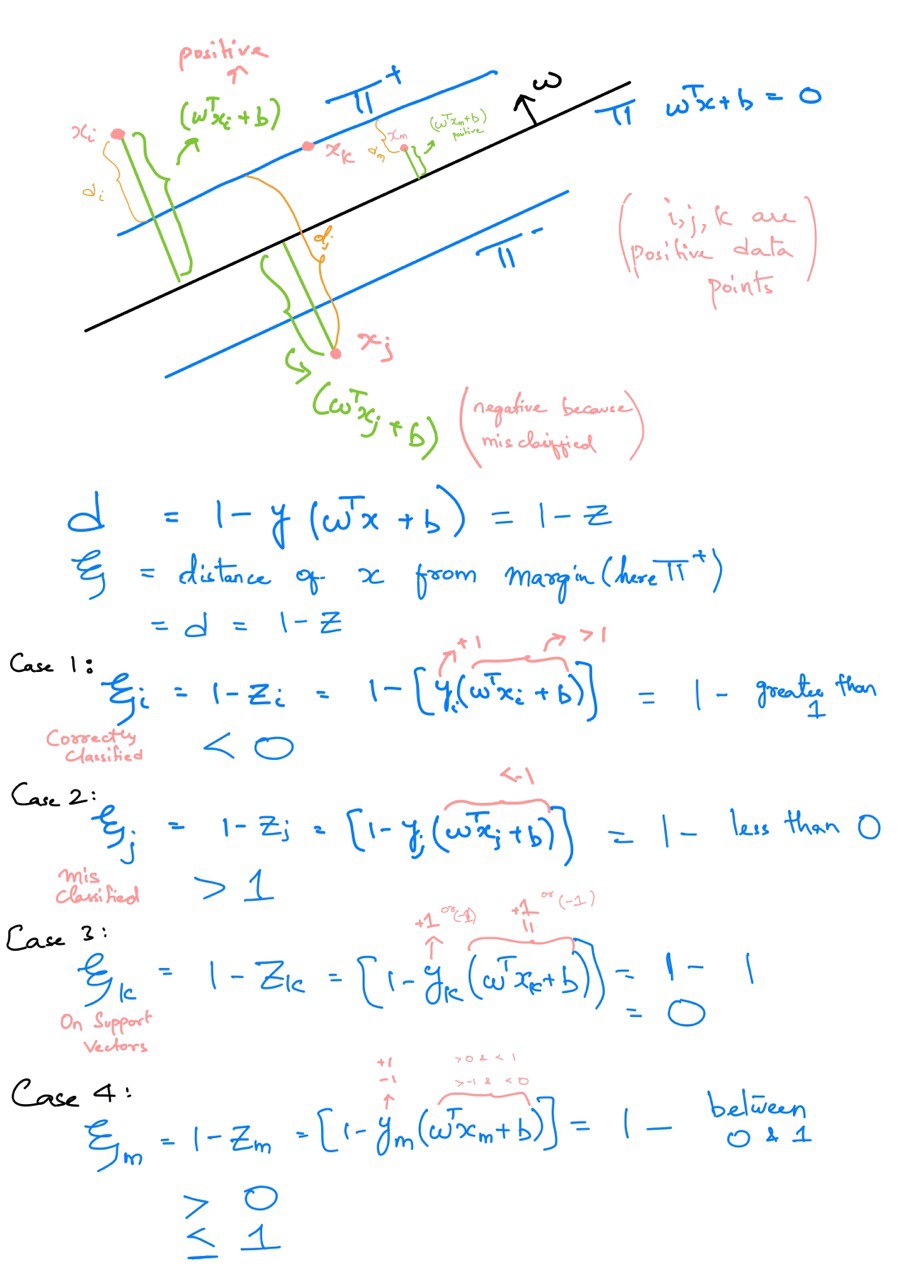 positive
(ωᵀxᵢ+b)
xᵢ
dᵢ
π⁺
xₖ
xₘ
dₘ
(ωᵀxₘ+b)
positive
ω
π ωᵀx+b = 0
(i,j,k are
positive data
points)
dⱼ
π⁻
xⱼ
(ωᵀxⱼ+b)
(negative because
misclaiffied)
d = 1-y(ωᵀx+b) = 1-z
ξ = distance of x from margin (here π⁺)
= d = 1-z
+1 >1
Case 1:
ξᵢ = 1-zᵢ = 1-[yᵢ(ωᵀxᵢ+b)] = 1- greater than
1
Correctly
Classified
< 0
<-1
Case 2:
ξⱼ = 1-zⱼ = [1-yⱼ(ωᵀxⱼ+b)] = 1- less than 0
mis
Classified
> 1
+1 or (-1) +1 or (-1)
=
Case 3:
ξₖ = 1-zₖ = [1-yₖ(ωᵀxₖ+b)] = 1- 1
= 0
On Support
Vectors
+1 >0 & <1
-1 >-1 & <0
Case 4:
ξₘ = 1-zₘ = [1-yₘ(ωᵀxₘ+b)] = 1- between
0 & 1
> 0
≤ 1